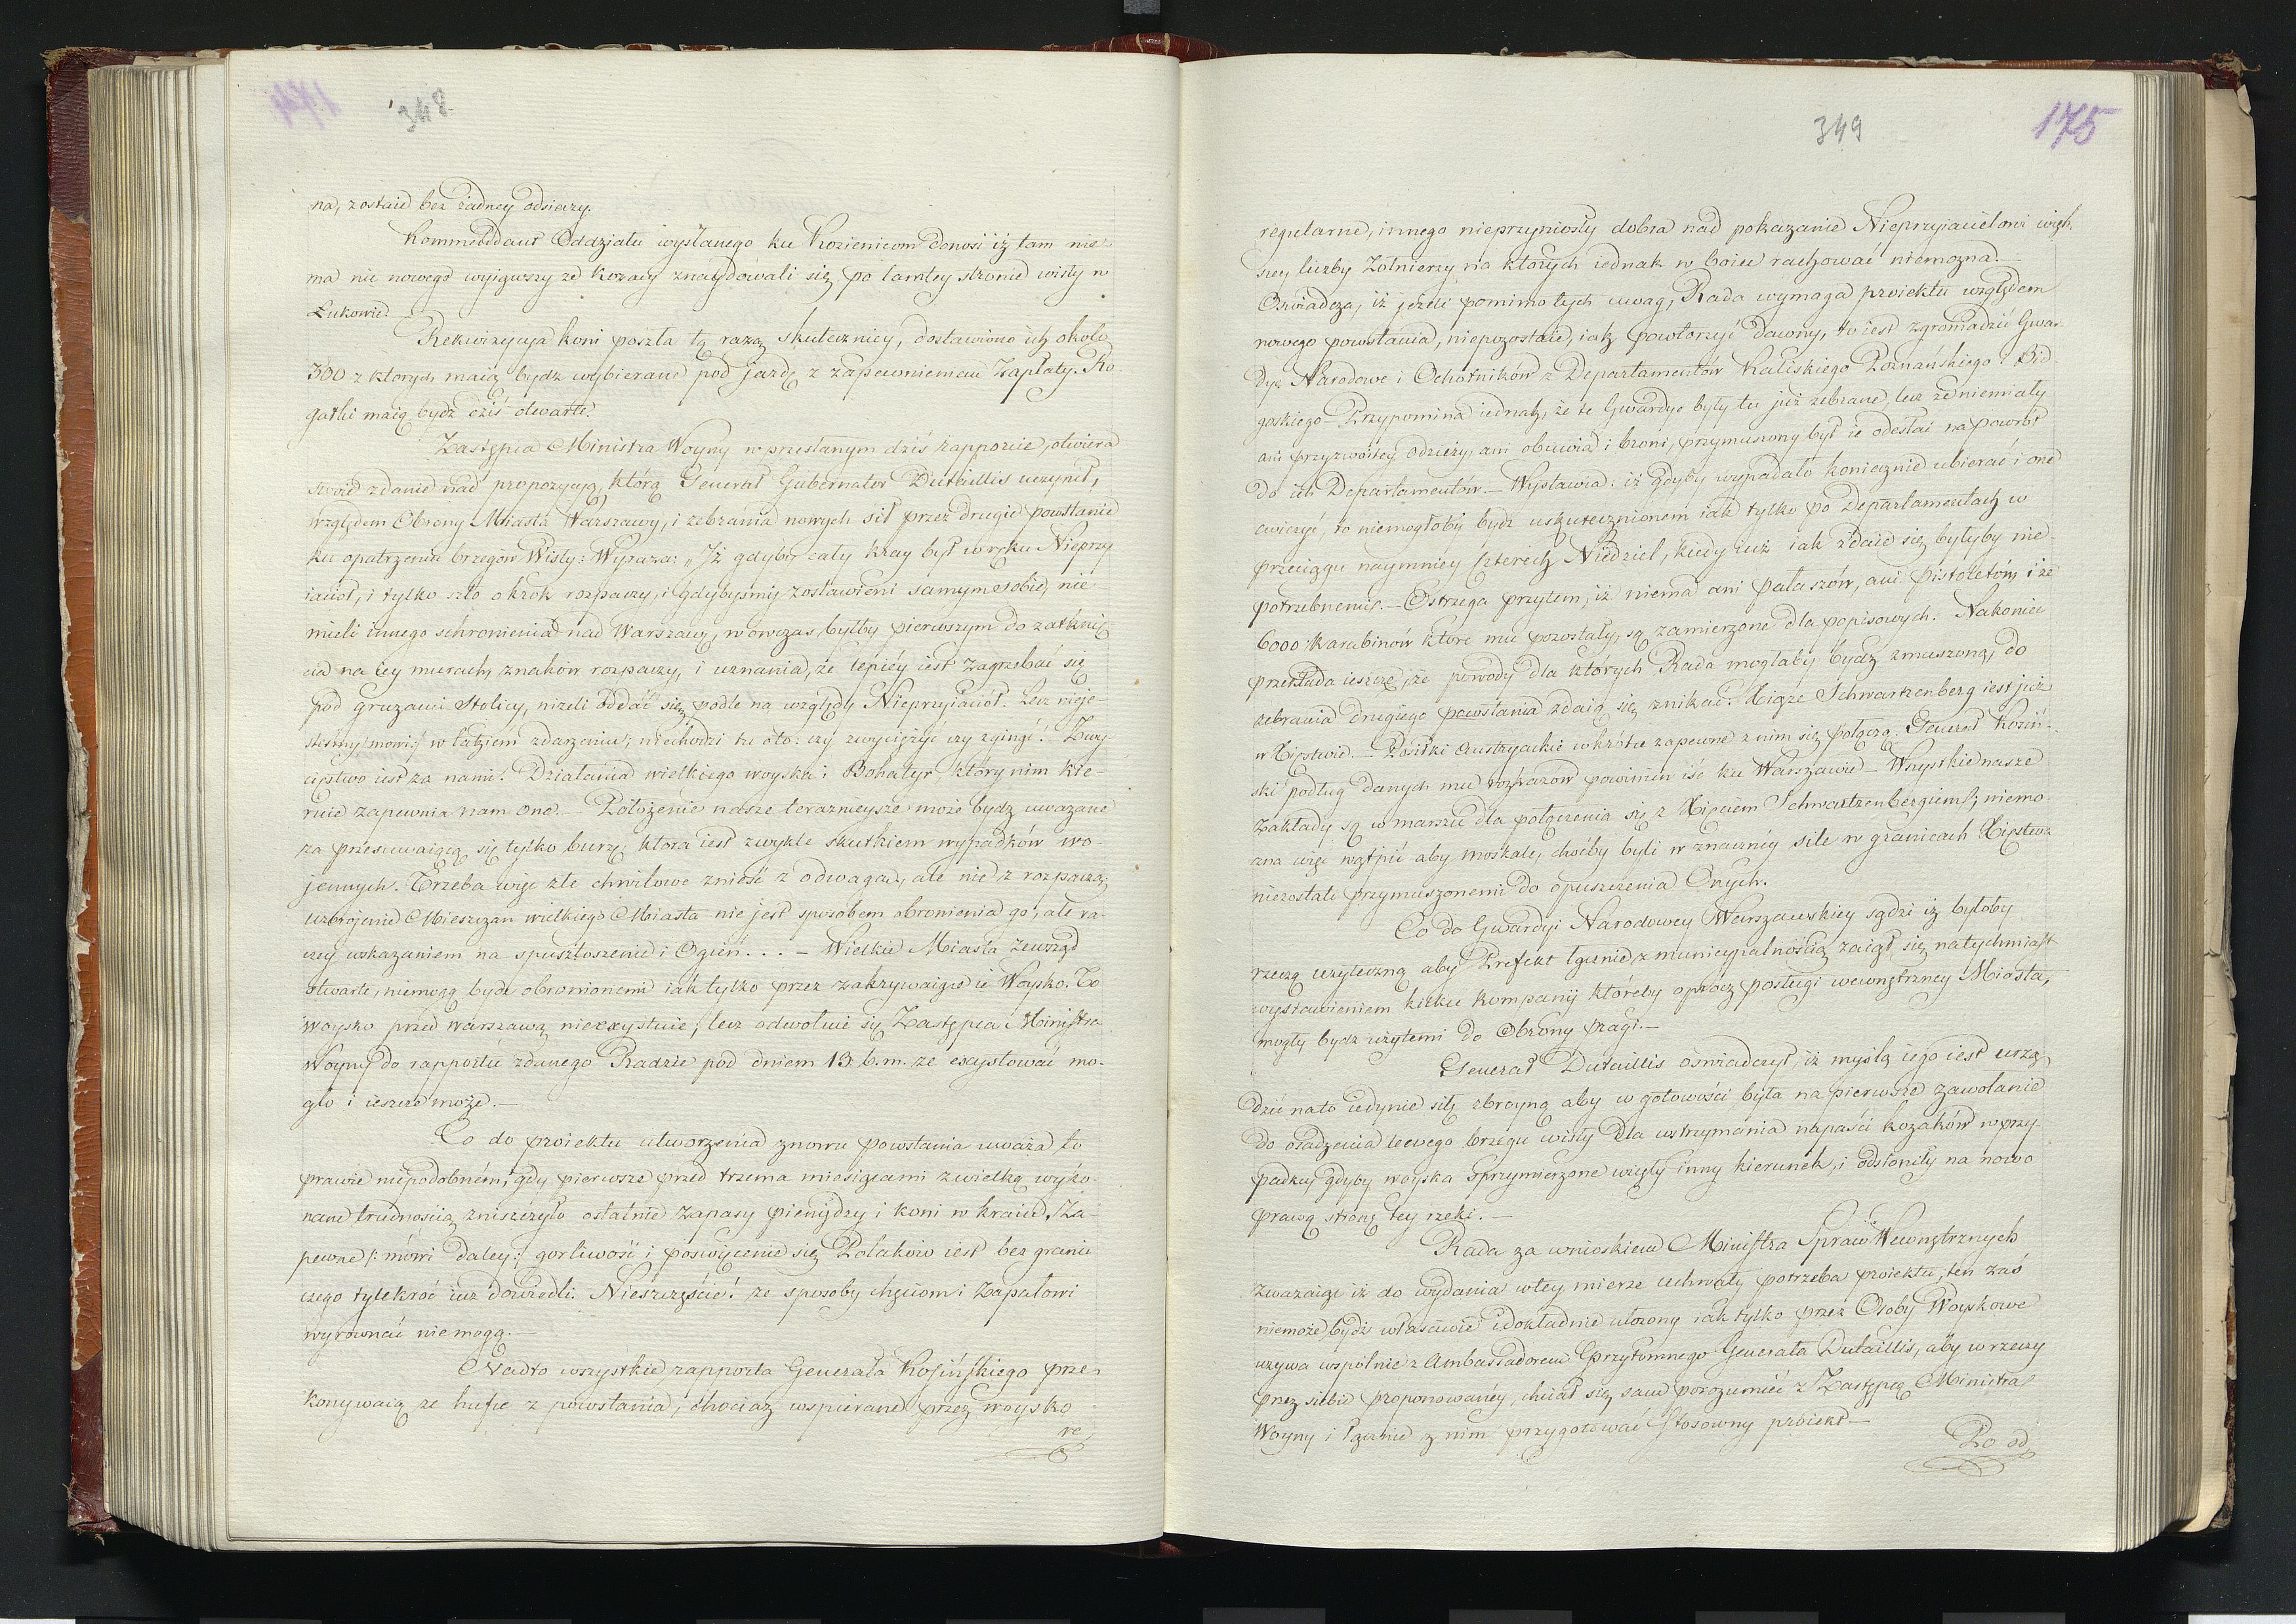 348
na, zostaie bez żadney odsieczy.
Kommendant Oddziału wysłanego ku Kozienicom donosi iż tam nie
ma nic nowego wyiąwszy że kozacy znaydowali się po tamtey stronie wisły w
Łukowie.
Rekwizycya koni poszła tą razą skuteczniey, dostawiono ich około
300 z których maią bydź wybierane pod jazdę z zapewnieniem Zapłaty. Ro-
gatki maią bydź dziś otwarte.
Zastępca Ministra Woyny w przesłanym dziś rapporcie, otwiera
swoie zdanie nad propozycyą, którą Generał Gubernator Dutaillis uczynił,
względem Obrony Miasta Warszawy, i zebrania nowych sił przez drugie powstanie
ku opatrzeniu brzegów Wisły: Wyraża: „Iż gdyby cały kray był w ręku Nieprzy-
iaciół, i tylko szło o krok rozpaczy, i gdybyśmy zostawieni samym sobie, nie
mieli innego schronienia nad Warszawę, w owczas byłby pierwszym do zatknię-
cia na iey murach, znaków rozpaczy, i uznania, że lepiéy iest zagrzebać się
pod gruzami Stolicy, niżeli oddać się podle na względy Nieprzyiaciół. Lecz nieje-
steśmy /:mowi:/ w takiem zdarzeniu; niechodzi tu oto: czy zwyciężyć czy zginąć! Zwy-
cięstwo iest za nami. Działania wielkiego woyska i Bohatyr, który nim kie-
ruie zapewnia nam one. — Położenie nasze teraznieysze może bydź uważane
za przesuwaiącą się tylko burzę, ktora iest zwykle skutkiem wypadków wo-
jennych. Trzeba więc złe chwilowe znieść z odwagą, ale nie z rozpaczą;
uzbrojenie Mieszczan wielkiego Miasta nie jest sposobem obronienia go, ale ra-
czey wskazaniem na spustoszenie i Ogień... — Wielkie Miasta zewsząd
otwarte, niemogą bydź obronionemi iak tylko przez zakrywaiące ie Woysko. To
woysko przed Warszawą nieexystuie; lecz odwołuie się Zastępca Ministra
Woyny do rapportu zdanego Radzie pod dniem 13. b. m. że exystować mo-
gło i ieszcze może. —
Co do proiektu utworzenia znowu powstania uważa to
prawie niepodobném, gdy pierwsze przed trzema miesiącami z wielką wyko-
nane trudnością zniszczyło ostatnie zapasy pieniędzy i koni w kraiu. Za-
pewne /: mówi daley :/ gorliwość i poswięcenie się Polaków iest bez granic
czego tylekroć iuż dowiedli. Nieszczęście! że sposoby chęciom i zapałowi
wyrównać niemogą. —
Nadto wszystkie rapporta Generała Kosińskiego prze-
konywaią że hufce z powstania, chociaż wspierane przez woysko
re
349
175
regularne, innego nieprzyniosły dobra nad pokazanie Nieprzyiacielowi więk-
szey liczby Żołnierzy na których iednak w boiu rachować niemożna. —
Oswiadcza, iż jeżeli pomimo tych uwag, Rada wymaga proiektu względem
nowego powstania, niepozostaie, iak powtorzyć dawny, to iest zgromadzić Gwar-
dye Narodowe i Ochotników z Departamentów Kaliskiego Poznańskiego i Bid-
goskiego — Przypomina iednak, że te Gwardye były tu już zebrane, lecz że niemiały
ani przyzwoitey odzieży, ani obuwia i broni, przymuszony był ie odesłać na powrot
do ich Departamentów. — Wystawia: iż gdyby wypadało koniecznie ubierać i one
cwiczyć, to niemogłoby bydź uskutecznionem iak tylko po Departamentach w
przeciągu naymniey Czterech Niedziel, kiedy iuż iak zdaie się byłyby nie-
potrzebnemi. — Ostrzega przytem, iż niema ani pałaszów, ani pistoletów, i że
6000 karabinów które mu pozostały, są zamierzone dla popisowych. Nakoniec
przekłada ieszcze, że powody dla których Rada mogłaby bydź zmuszoną, do
zebrania drugiego powstania zdaią się znikać. Xiąże Schwartzenberg iest już
w Xięstwie. — Posiłki Austryackie wkrótce zapewne z nim się połączą. Generał Kosiń-
ski podług danych mu rozkazów powinien iść ku Warszawie — Wszystkie nasze
Zakłady są w marszu dla połączenia się z Xięciem Schwartzenbergiem; niemo-
żna więc wątpić aby moskale, choćby byli w znaczney sile w granicach Xięstwa
niezostali przymuszonemi do opuszczenia Onych.
Co do Gwardyi Narodowey Warszawskiey sądzi iż byłoby
rzeczą użyteczną aby Prefekt łącznie z municypalnością zaiął się natychmiast
wystawieniem kilku kompanij któreby oprócz posługi wewnętrzney Miasta,
mogły bydź użytemi do Obrony Pragi. —
Generał Dutaillis oświadczył, iż myślą iego iest urzą-
dzić nato iedynie siłę zbroyną aby w gotowości była na pierwsze zawołanie
do osadzenia lewego brzegu wisły dla wstrzymania napaści kozaków w przy-
padku, gdyby woyska sprzymierzone wzięły inny kierunek, i odsłoniły na nowo
prawą stronę tey rzeki. —
Rada za wnioskiem Ministra Spraw Wewnętrznych
zważaiąc iż do wydania wtey mierze uchwały potrzeba proiektu, ten zaś
niemoże bydź właściwie i dokładnie ułożony iak tylko przez Osoby Woyskowe
wzywa wspólnie z Ambassadorem Przytomnego Generała Dutaillis, aby w rzeczy
przez siebie proponowanéy, chciał się sam porozumieć z Zastępcą Ministra
Woyny i łącznie z nim przygotować stosowny proiekt —
Po od